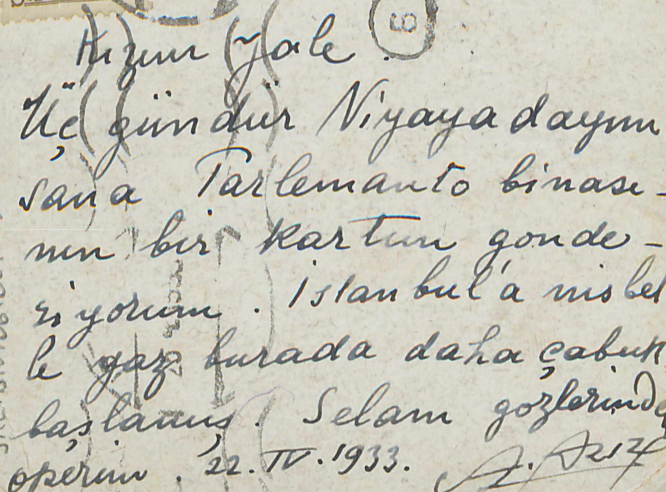 Kızım Jale.
Üç gündür Niyayadayım
sana Parlemanto binası-
nın bir kartını gönde-
riyorum. İstanbul'a nisbet
le yaz burada daha çabuk
başlamış. Selam gözlerinde
öperim. 22.IV.1933.
A. Aziz